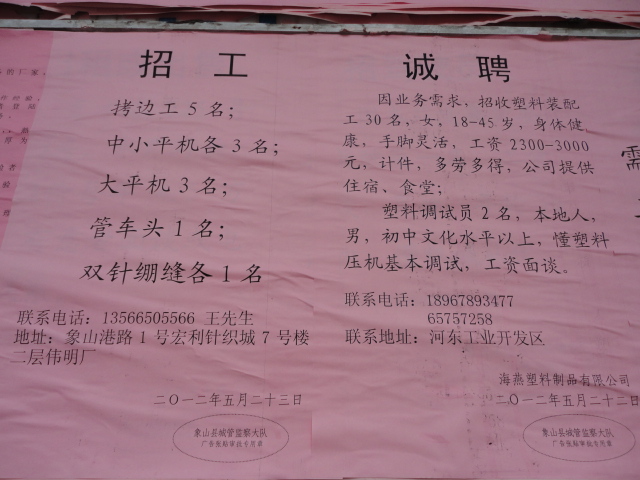 招 工
拷边工 5 名；
中小平机各 3 名；
大平机 3 名；
管车头 1 名；
双针绷缝各 1 名
联系电话：13566505566 王先生
地址：象山港路 1 号宏利针织城 7 号楼
二层伟明厂
二〇一二年五月二十三日
象山县城管监察大队
广告张贴审批专用章
诚 聘
因业务需求，招收塑料装配
工 30 名，女，18-45 岁，身体健
康，手脚灵活，工资 2300-3000
元，计件，多劳多得，公司提供
住宿、食堂；
塑料调试员 2 名，本地人，
男，初中文化水平以上，懂塑料
压机基本调试，工资面谈。
联系电话：18967893477
65757258
联系地址：河东工业开发区
海燕塑料制品有限公司
二〇一二年五月二十二日
象山县城管监察大队
广告张贴审批专用章
需